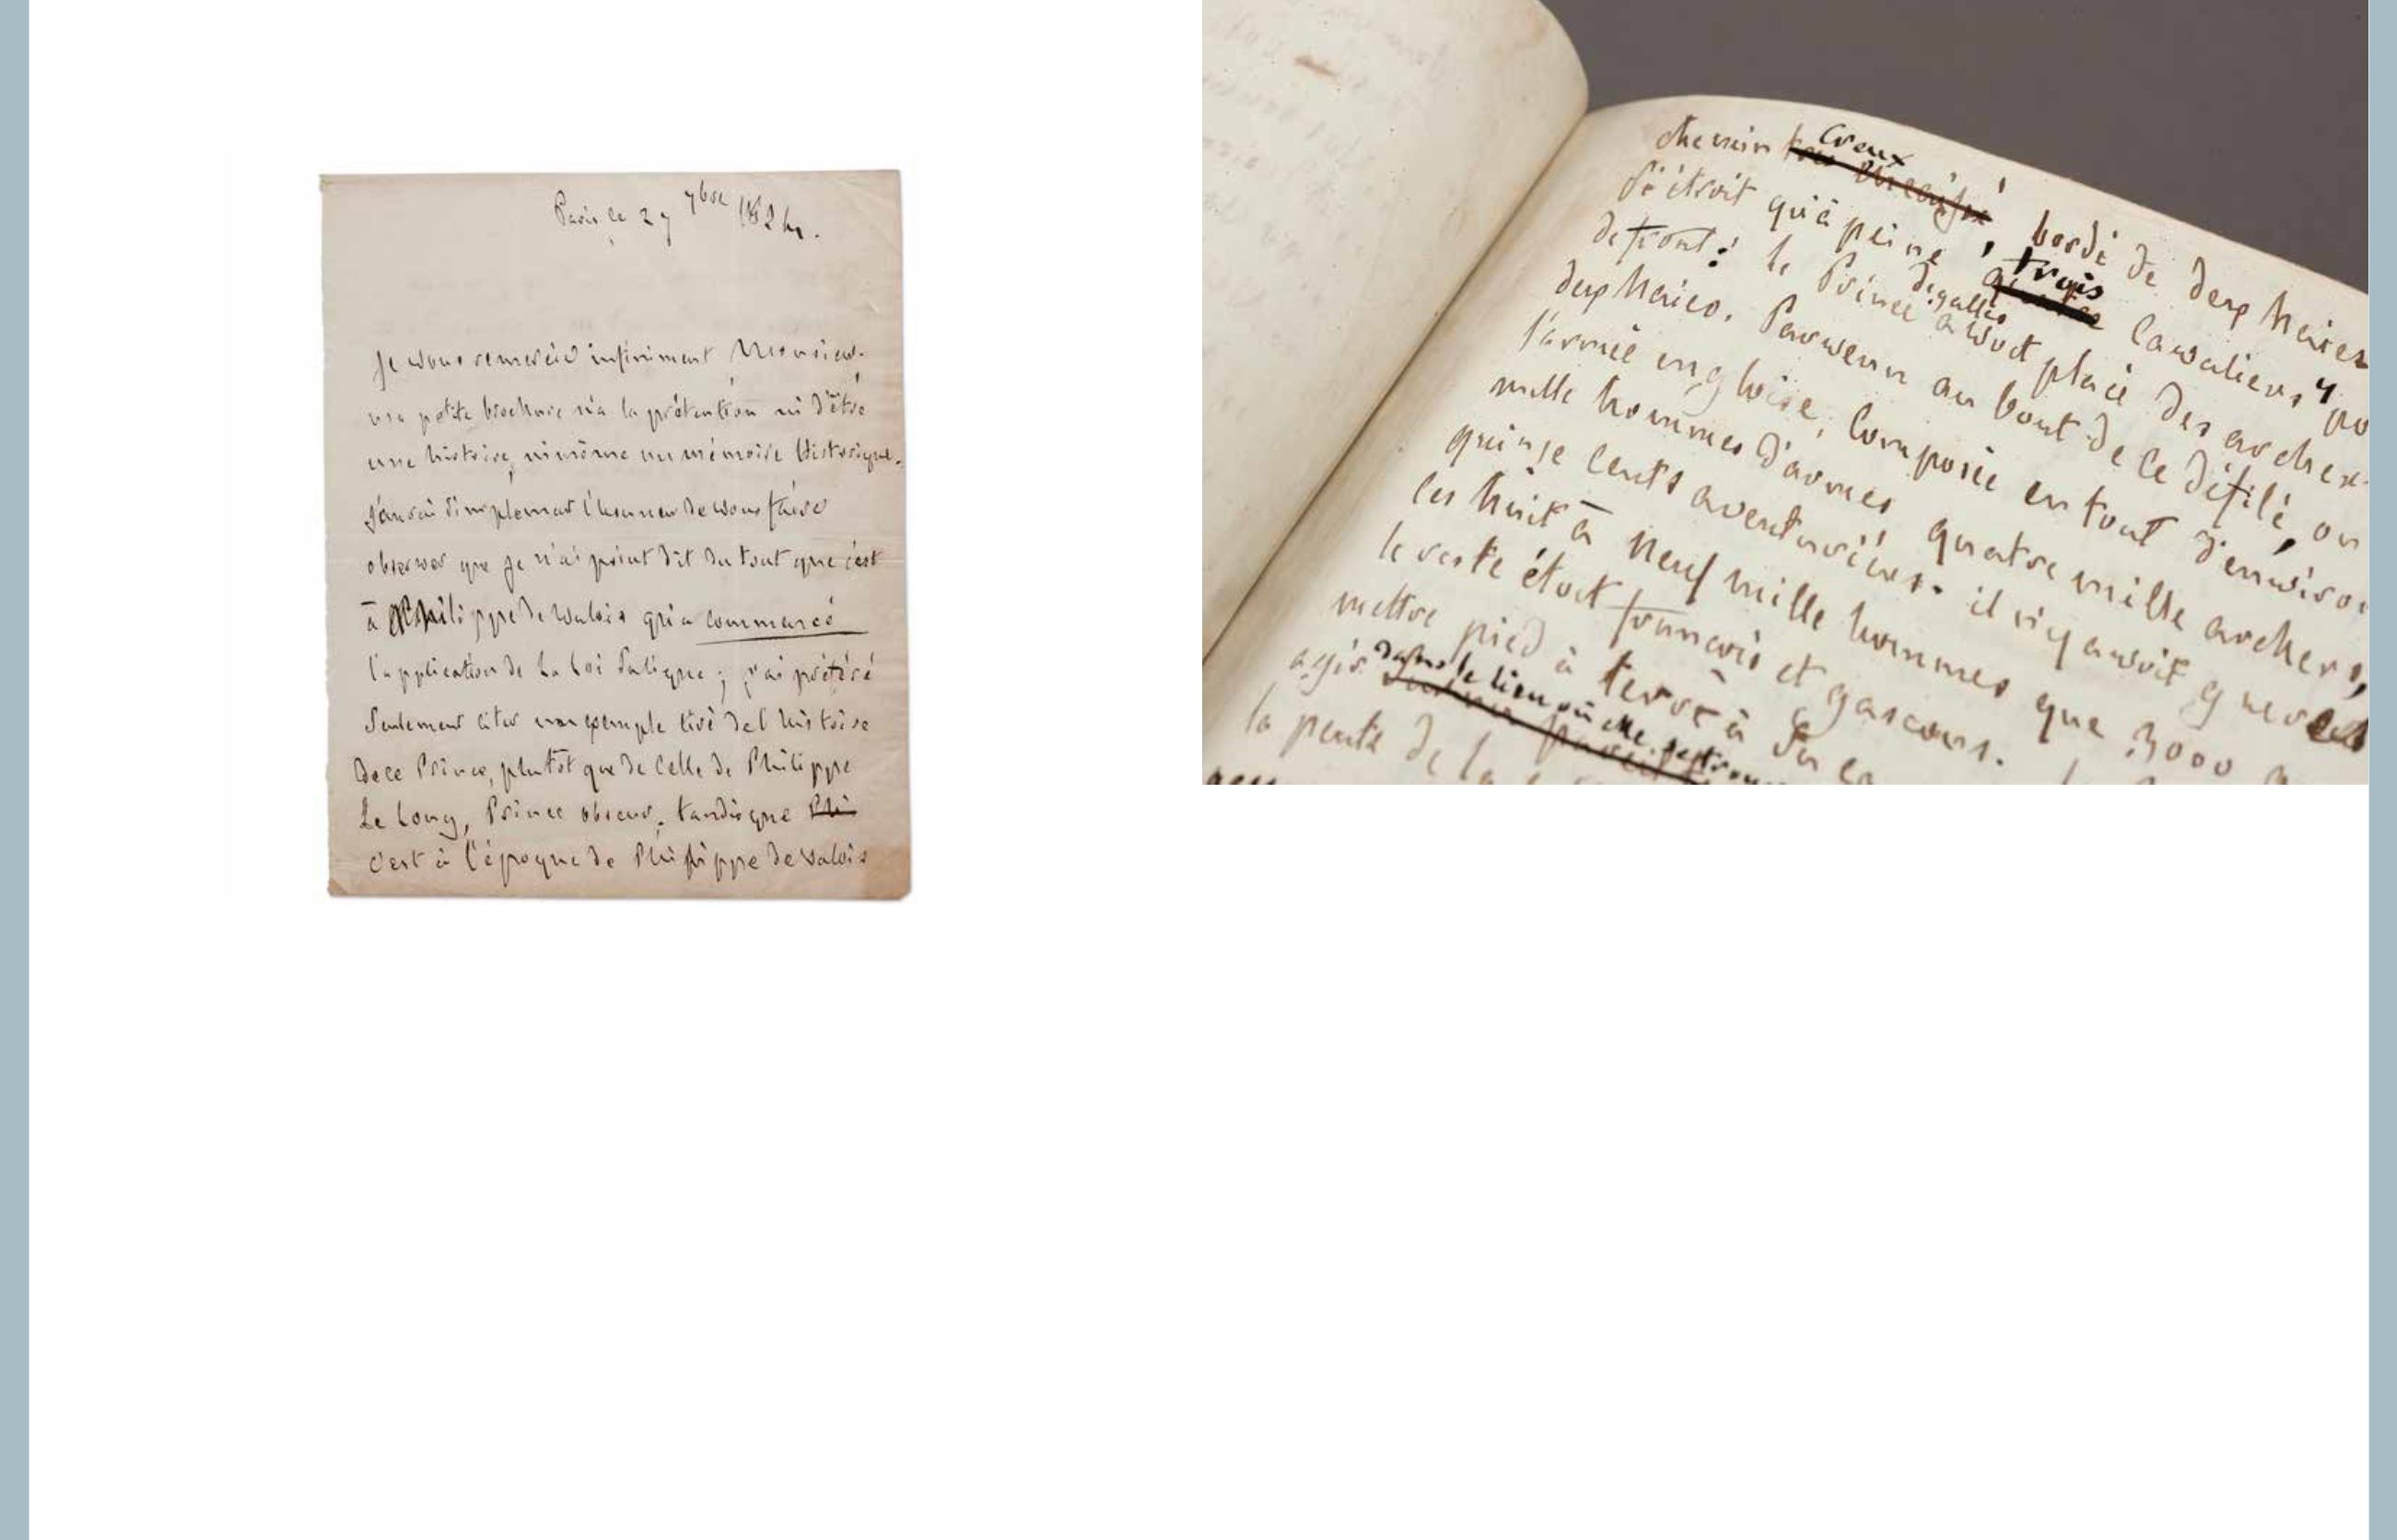 Paris le 27 7bre 1824.
Je vous remercie infiniment Monsieur.
ma petite brochure n'a la prétention ni d'être
une histoire, ni même un mémoire historique.
j'aurai simplement l'honneur de vous faire
observer que je n'ai point dit du tout que c'est
à Philippe de Valois qui a commencé
l'application de La Loi Salique ; j'ai préféré
Seulement citer un exemple tiré de l'histoire
de ce Prince, plutôt que de Celle de Philippe
Le Long, Prince obscur, tandis que Phi
c'est à l'époque de Philippe de Valois
chemin creux, bordé de deux haies
Si étroit qu'à peine trois Cavaliers y
de front : le Prince de galles avoit placé des archers
deux haies. Parvenu au bout de ce défilé, on
l'armée angloise, Composée en tout d'environ
mille hommes d'armes quatre mille archers,
quinze cents aventuriers. il n'y avoit gueres
les huit à neuf mille hommes que 3000
le reste étoit françois et gascons.
mettre pied à terre à
agir dans le lieu où elle
la pente de la